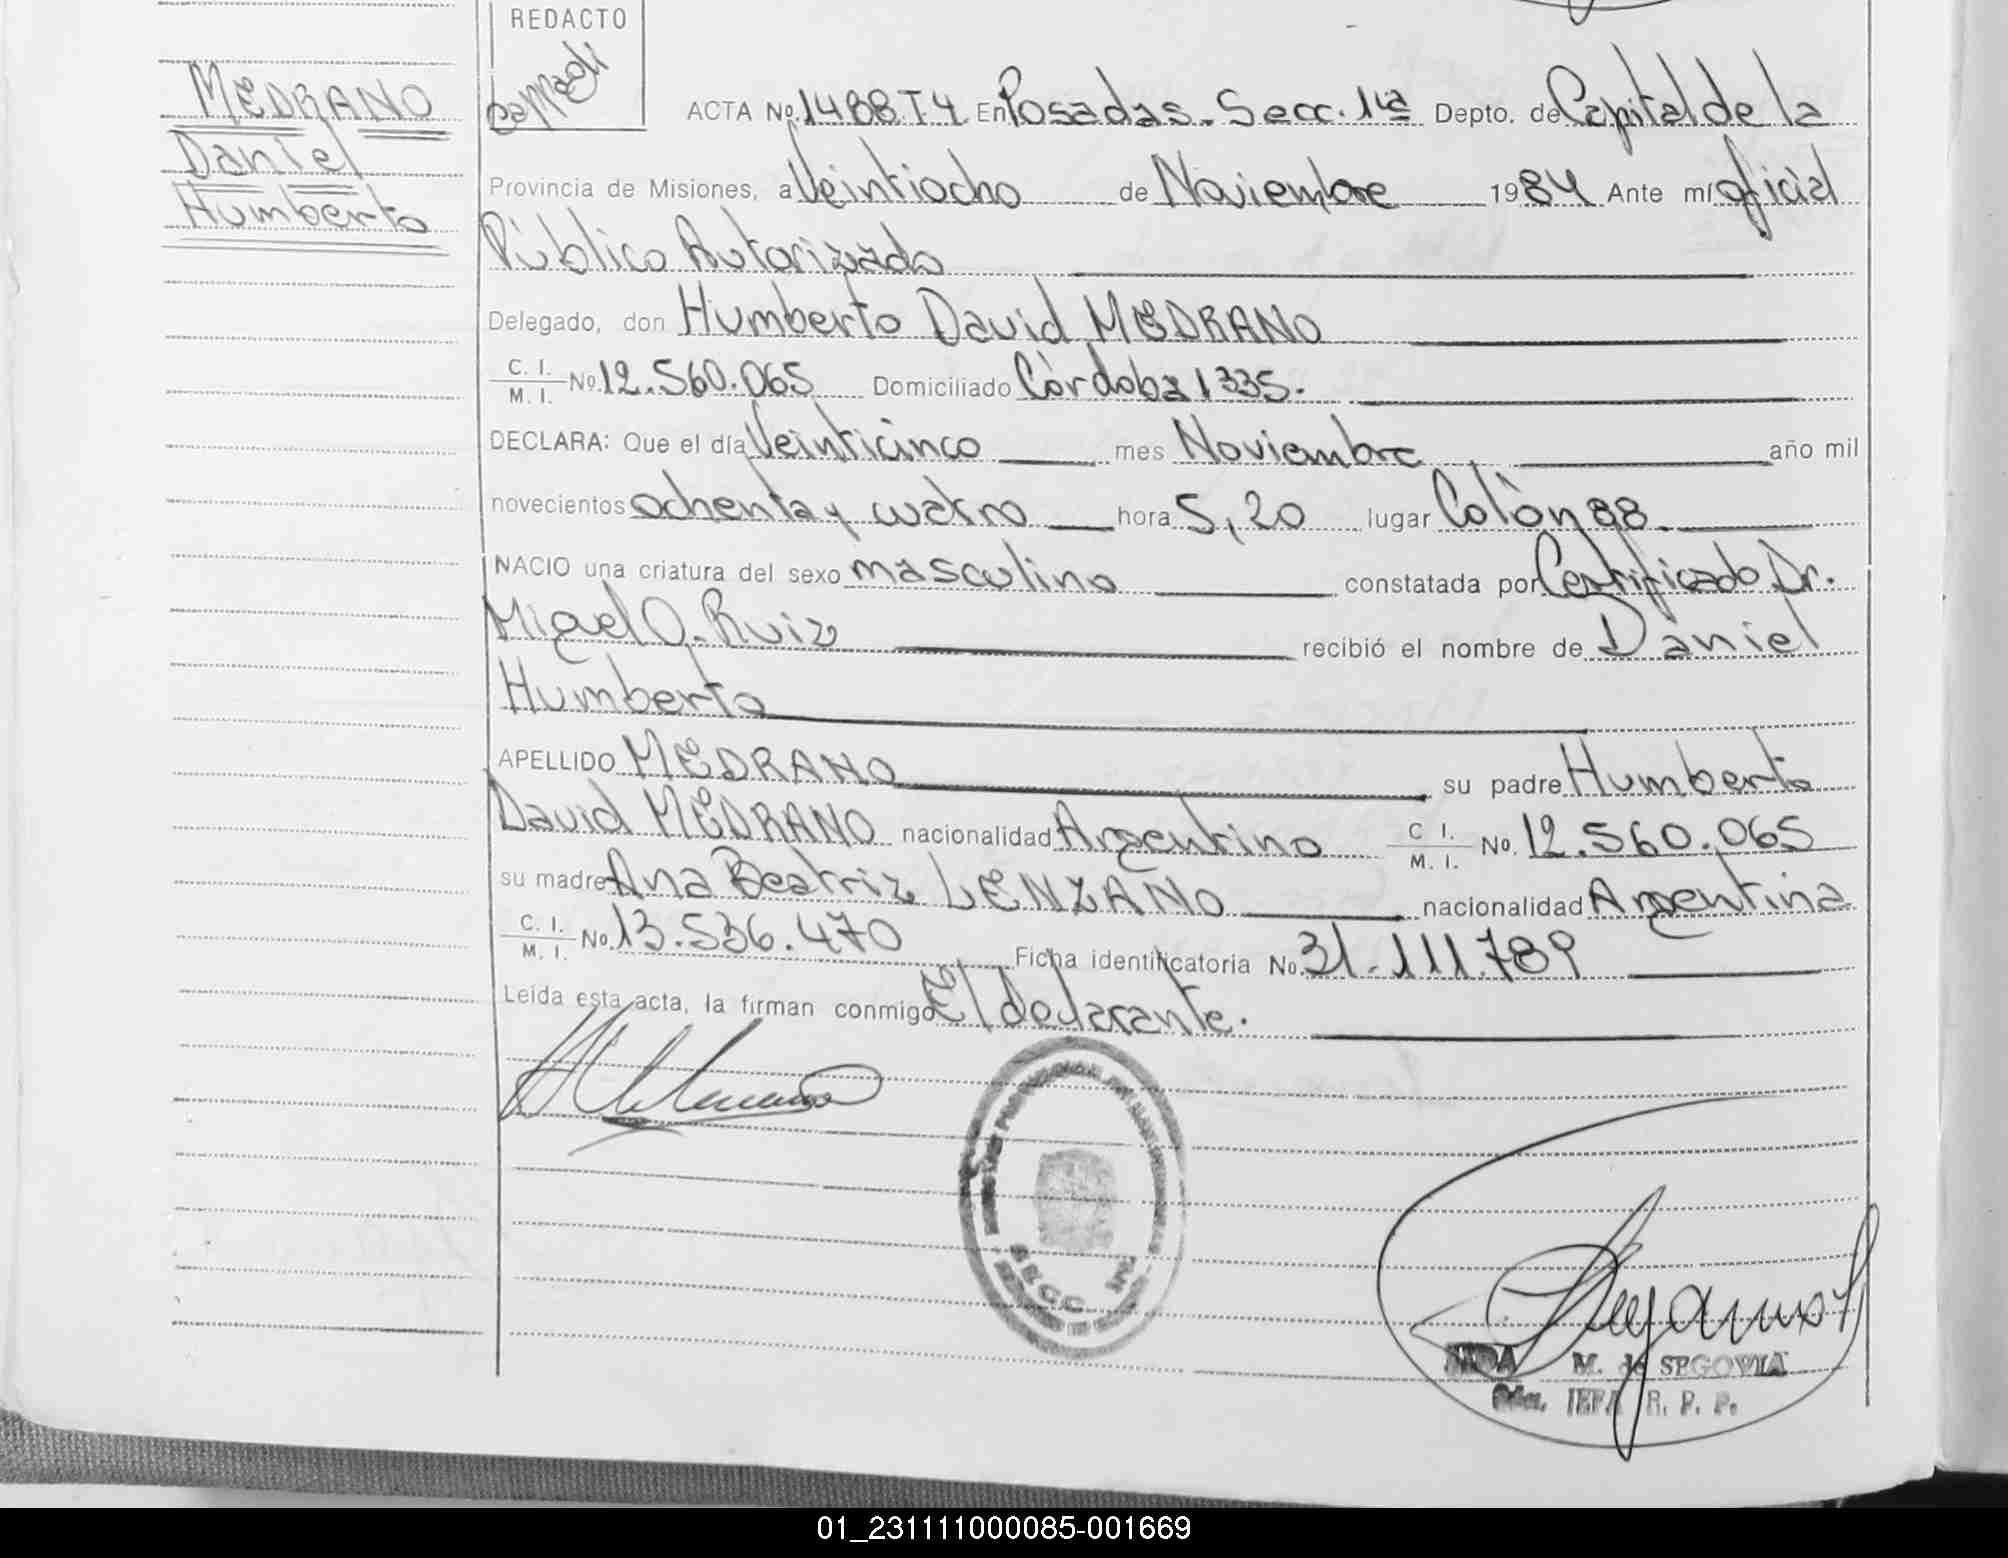 REDACTO
MEDRANO
Daniel
Humberto
ACTA Nº 1488 T4 En Posadas. Secc. 1ª Depto. de Capital de la
Provincia de Misiones, a Veintiocho de Noviembre 1984 Ante mí oficial
Público Autorizado
Delegado, don Humberto David MEDRANO
C. I.
M. I. Nº 12.560.065 Domiciliado Córdoba 1335.
DECLARA: Que el día Veinticinco mes Noviembre año mil
novecientos ochenta y cuatro hora 5,20 lugar Colòn 88
NACIO una criatura del sexo masculino constatada por Certificado Dr.
Miguel O. Ruiz recibió el nombre de Daniel
Humberto
APELLIDO MEDRANO su padre Humberto
David MEDRANO nacionalidad Argentino C I.
M. I. Nº. 12.560.065
su madre Ana Beatriz LENZANO nacionalidad Argentina
C. I.
M. I. No. 13.536.470 Ficha identificatoria No. 31.111.789
Leída esta acta, la firman conmigo El declarante.
SECC
M. de SEGOVIA
R. P. P.
01_231111000085-001669